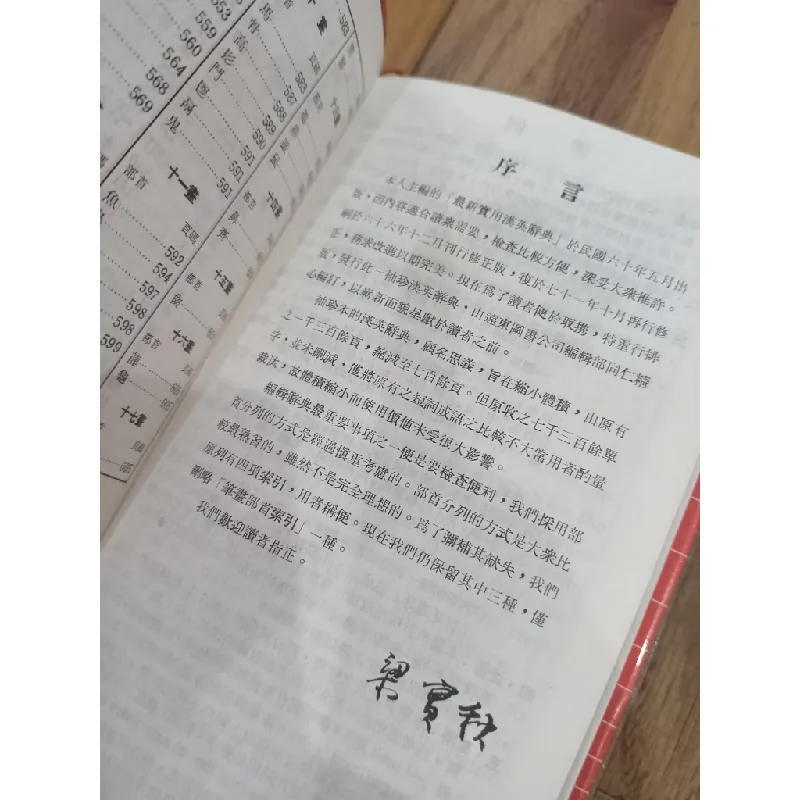 553
559
560
564
568
569
十畫
583
馬
骨
高
髟
鬥
鬯
鬲
鬼
583
587
588
589
590
591
591
591
十一畫
部首
頁碼
魚
592
594
597
598
598
599
十四畫
十五畫
十六畫
十七畫
部首
序言
本人主編的「最新實用漢英辭典」於民國六十年五月出
版,因內容適合讀衆需要,檢查比較方便,深受大衆推許。
嗣於六十六年十二月刊行修正版,復於七十一年十月再行修
正,務求改進以期完美。現在爲了讀者便於取攜,特重行排
版,發行此一袖珍漢英辭典,由遠東圖書公司編輯部同仁精
心編訂,以嶄新面貌呈獻於讀者之前。
袖珍本的漢英辭典,顧名思義,旨在縮小體積,由原有
之一千三百餘頁,縮減至七百餘頁。但原收之七千三百餘單
字,並未刪減,僅將原有之短詞成語之比較不大常用者酌量
裁汰,故體積縮小而使用價值未受很大影響。
編輯辭典最重要事項之一便是要檢查便利,我們採用部
首分列的方式是經過愼重考慮的。部首分列的方式是大衆比
較最熟習的,雖然不是完全理想的。爲了彌補其缺失,我們
原列有四項索引,用者稱便。現在我們仍保留其中三種,僅
刪略「筆畫部首索引」一種。
我們歡迎讀者指正。
梁實秋